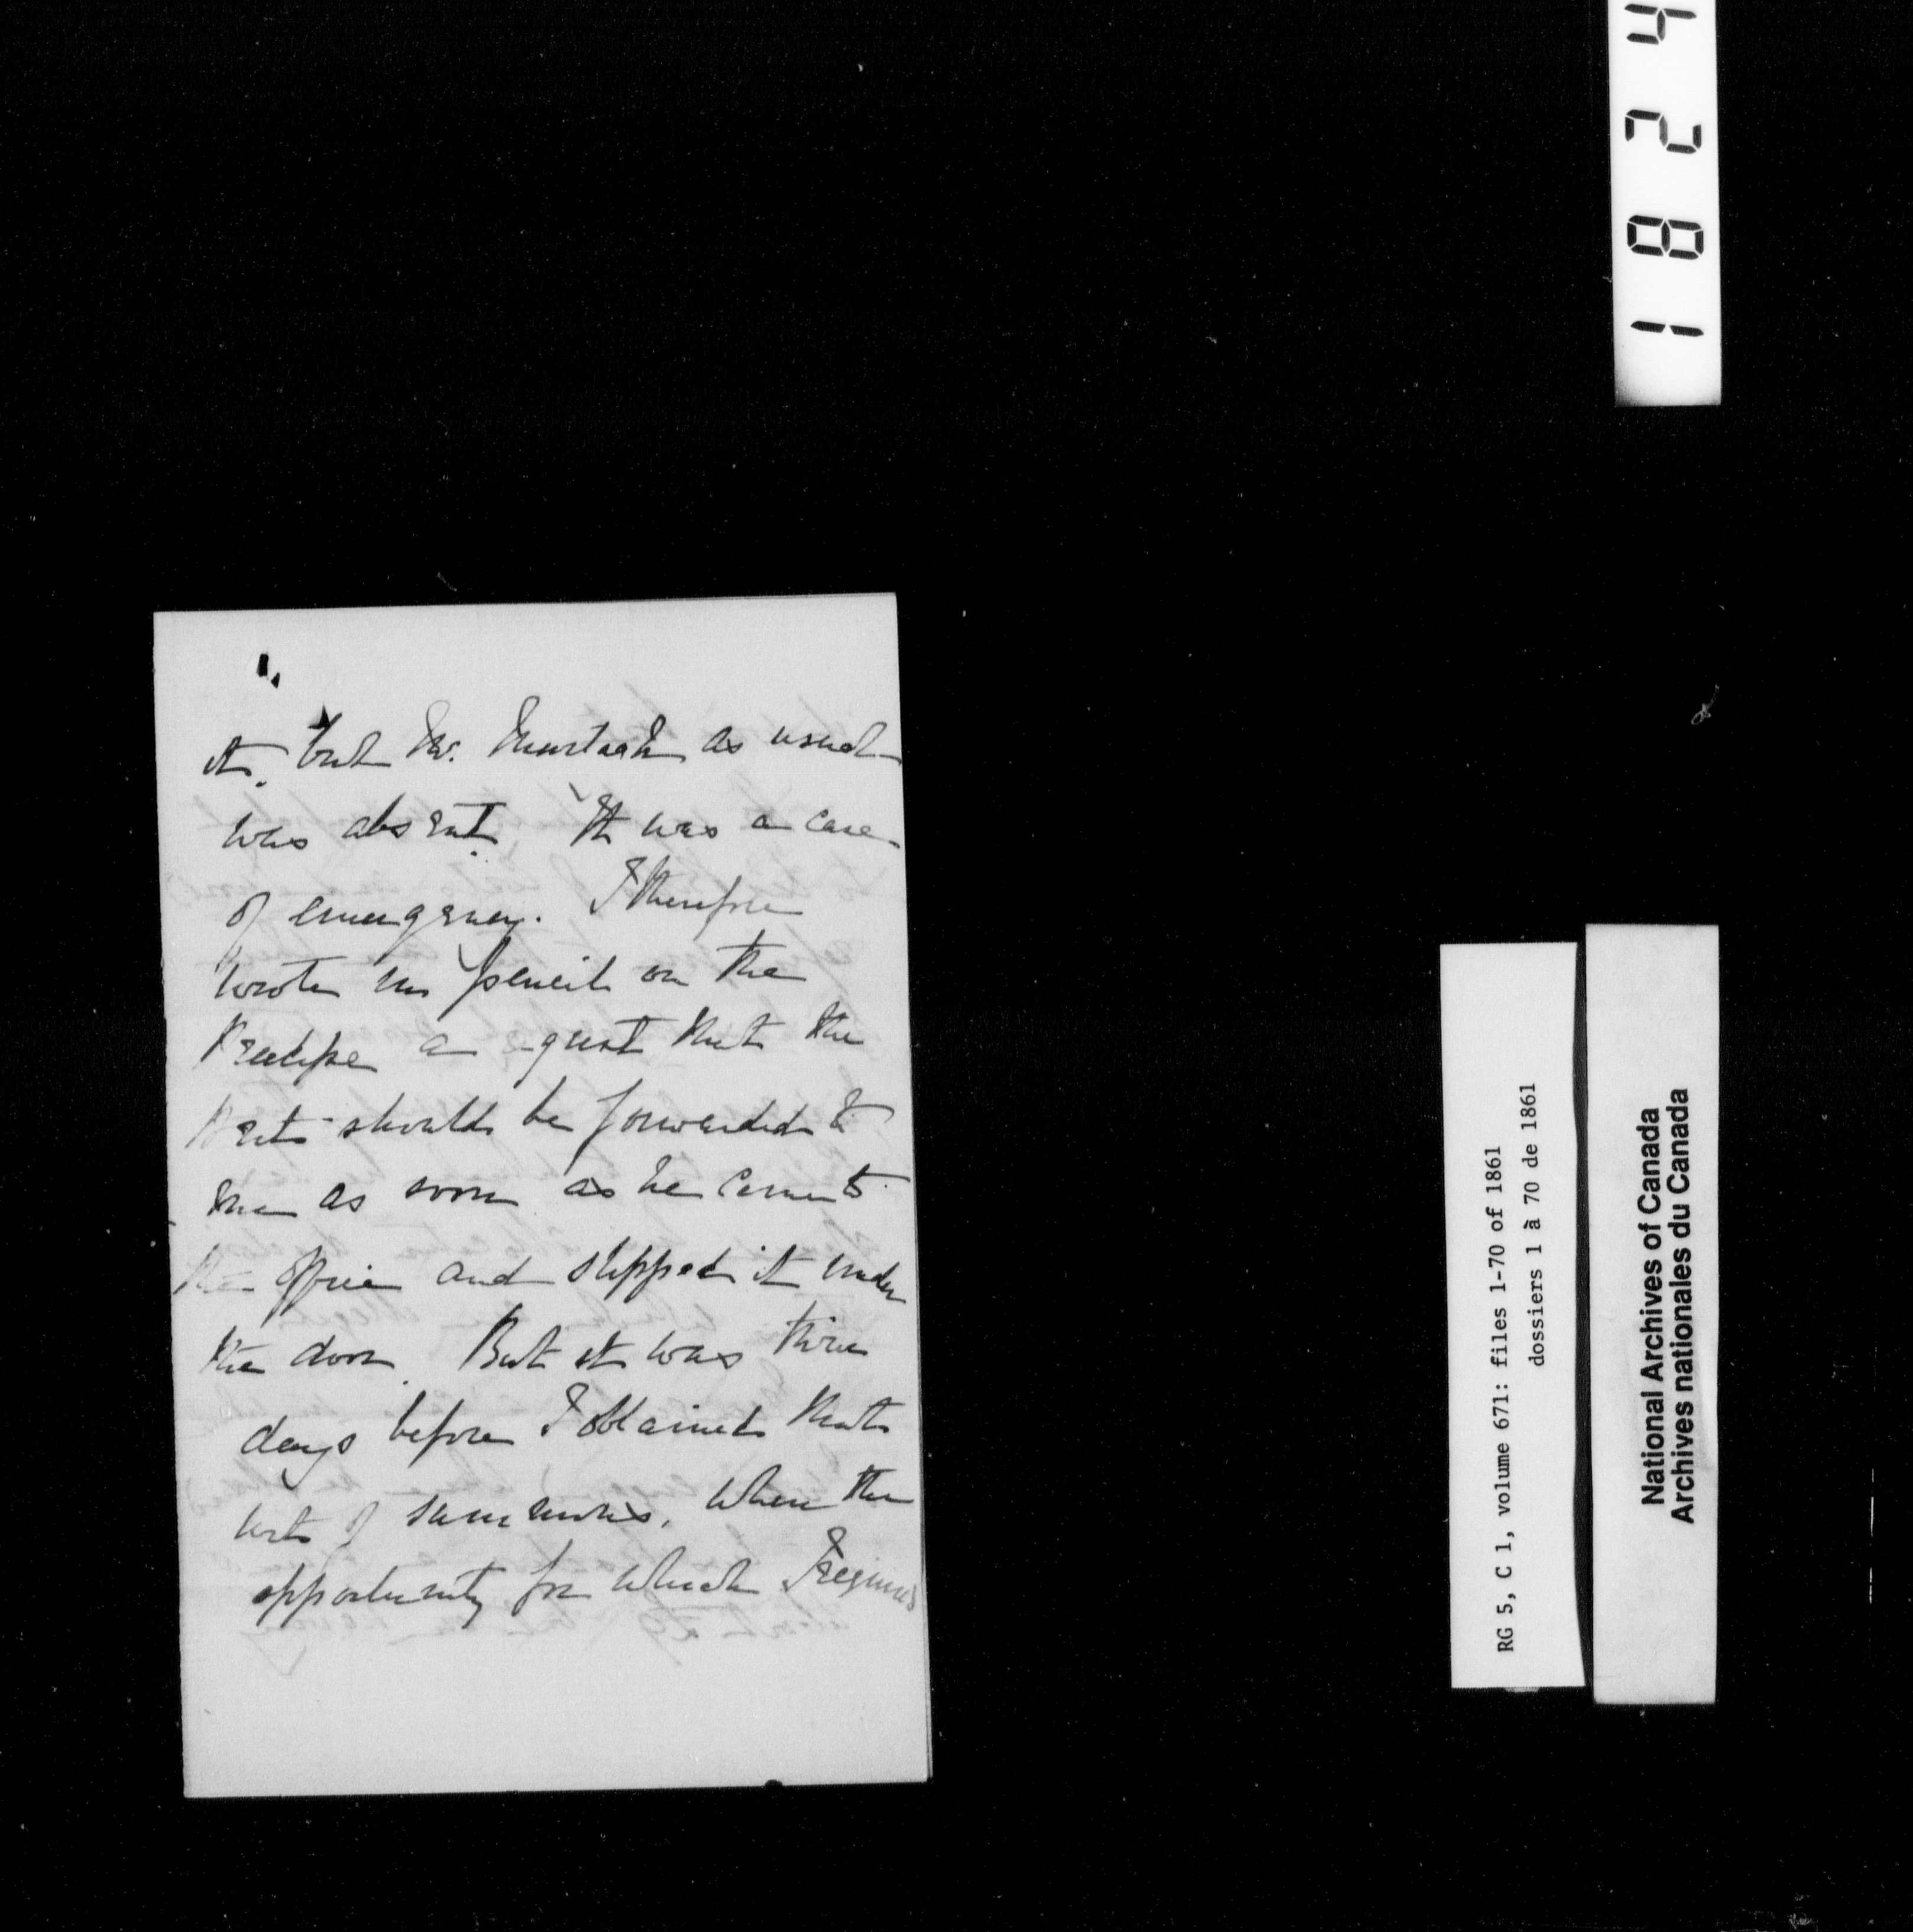 it, but Mr. Murtagh as usual
was absent. It was a case
of emergency. I therefore
wrote in pencil on the
Precipe a request that the
Writ should be forwarded to
me as soon as he came to
the office and slipped it under
the door. But it was three
days before I obtained that
writ of summons, when the
opportunity for which I required
1824
RG 5, C 1, volume 671: files 1-70 of 1861
dossiers 1 à 70 de 1861
National Archives of Canada
Archives nationales du Canada